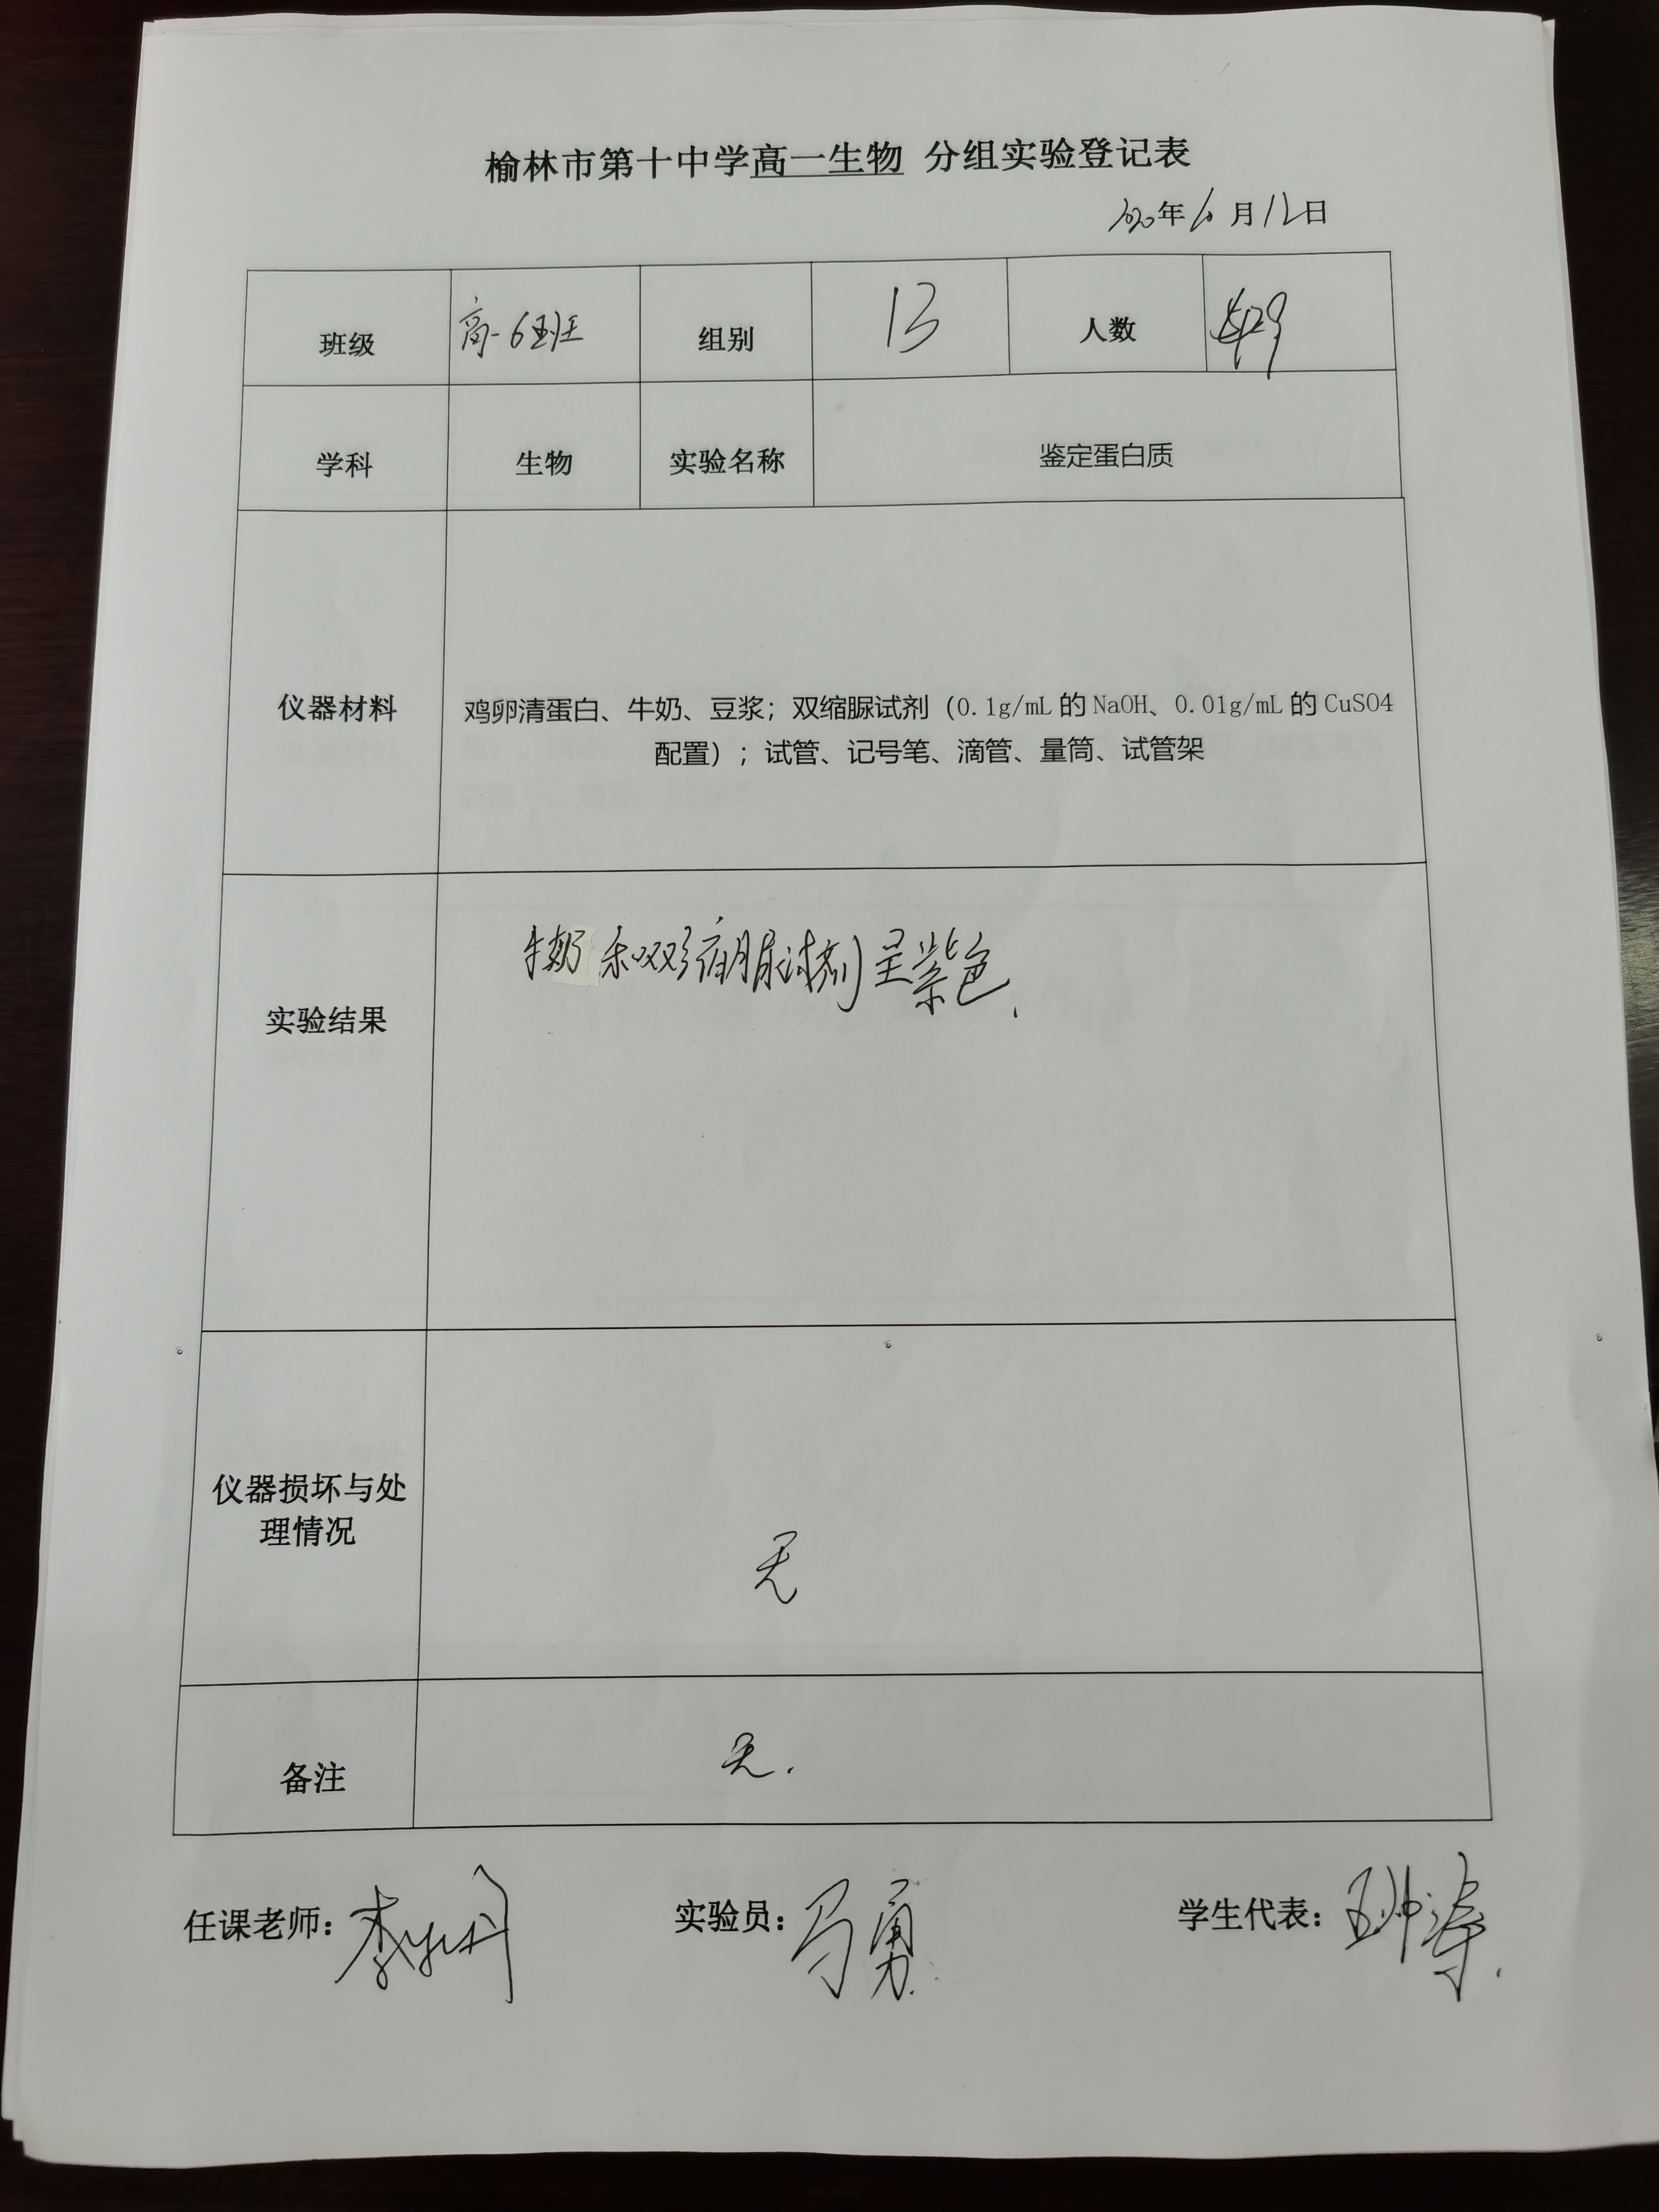 榆林市第十中学高一生物 分组实验登记表
2020年10月12日
班级 高一6班 组别 13 人数
学科 生物 实验名称 鉴定蛋白质
仪器材料
鸡卵清蛋白、牛奶、豆浆；双缩脲试剂（0.1g/mL 的 NaOH、0.01g/mL 的 CuSO4
配置）；试管、记号笔、滴管、量筒、试管架
实验结果
牛奶和双缩脲试剂呈紫色.
仪器损坏与处
理情况
无
备注 无.
任课老师： 实验员：马勇. 学生代表：